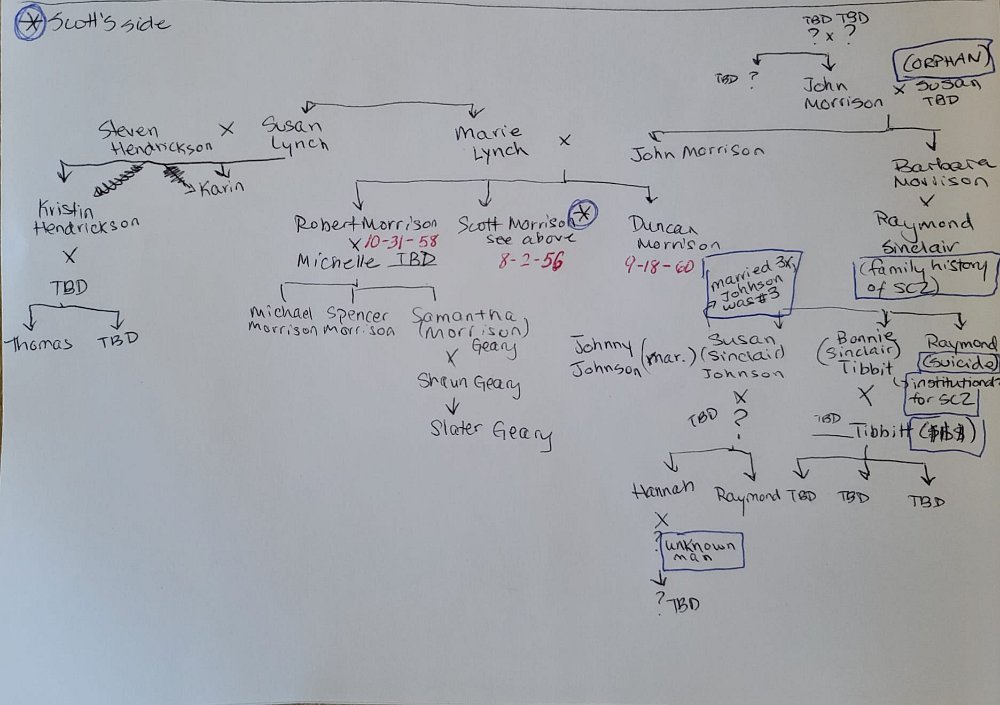 * Scott's side
TBD TBD
? x ?
TBD ?
John
Morrison
x
(ORPHAN)
Susan
TBD
Steven
Hendrickson
x
Susan
Lynch
Marie
Lynch
x
John Morrison
Barbara
Morrison
x
Raymond
Sinclair
(family history
of SCZ)
Kristin
Hendrickson
Karin
x
TBD
Thomas
TBD
Robert Morrison
x 10-31-58
Michelle TBD
Scott Morrison *
see above
8-2-56
Duncan
Morrison
9-18-60
Michael
Morrison
Spencer
Morrison
Samantha
(Morrison)
Geary
x
Shaun Geary
Slater Geary
married 3x,
Johnson
was #3
Johnny
Johnson
(mar.)
Susan
(Sinclair)
Johnson
x
TBD ?
Bonnie
(Sinclair)
Tibbit
x
TBD
Tibbitt ($$$)
Raymond
(suicide)
institutiond?
for SCZ
Hannah
Raymond
TBD
TBD
TBD
x
?
unknown
man
? TBD